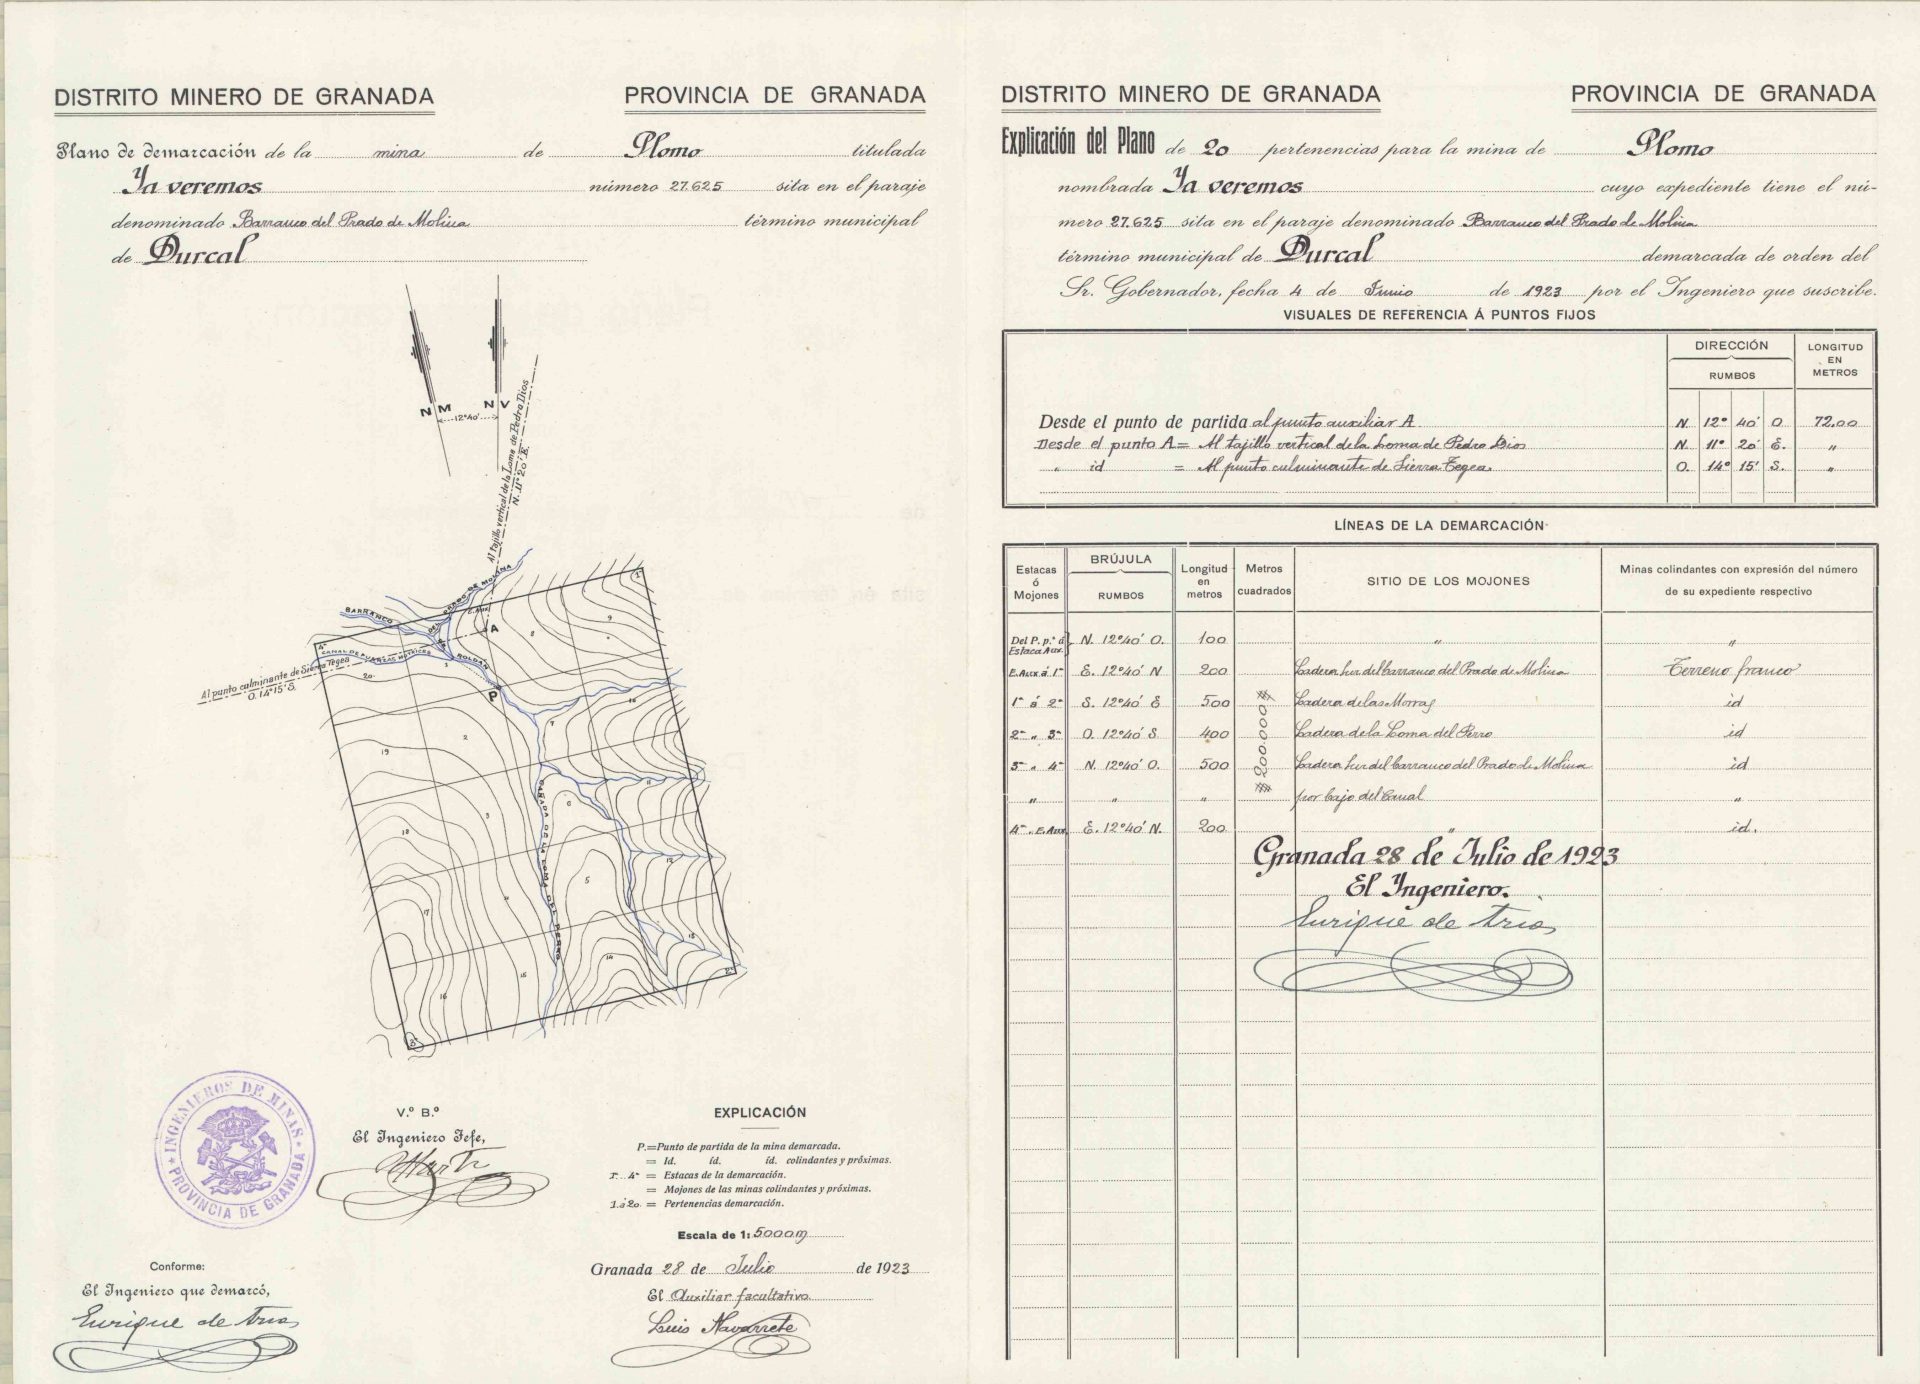 DISTRITO MINERO DE GRANADA
PROVINCIA DE GRANADA
Plano de demarcación de la mina de Plomo titulada
Ya veremos número 27.625 sita en el paraje
denominado Barranco del Prado de Molina término municipal
de Durcal
N M
N V
12°40'
Al tajillo vertical de la Loma de Pedro Dios
N. 11°20' E.
BARRANCO DEL PRADO DE MOLINA
BARRANCO DE ROLDÁN
E. Aux.
A
P
CANAL DE FUERZAS MOTRICES
Al punto culminante de Sierra Tegea
O. 14°15' S.
CAÑADA DE LA LOMA DEL PERRO
1ª
2ª
3ª
4ª
1
2
3
4
5
6
7
8
9
10
11
12
13
14
15
16
17
18
19
20
INGENIEROS DE MINAS
PROVINCIA DE GRANADA
V.º B.º
El Ingeniero Jefe,
EXPLICACIÓN
P.=Punto de partida de la mina demarcada.
= Id. íd. íd. colindantes y próximas.
1ª..4ª = Estacas de la demarcación.
= Mojones de las minas colindantes y próximas.
1.á 20. = Pertenencias demarcación.
Escala de 1: 5000 m
Granada 28 de Julio de 1923
El Auxiliar facultativo
Luis Navarrete
Conforme:
El Ingeniero que demarcó,
Enrique de Trias
DISTRITO MINERO DE GRANADA
PROVINCIA DE GRANADA
Explicación del Plano de 20 pertenencias para la mina de Plomo
nombrada Ya veremos cuyo expediente tiene el nú-
mero 27.625 sita en el paraje denominado Barranco del Prado de Molina
término municipal de Durcal demarcada de orden del
Sr. Gobernador, fecha 4 de Junio de 1923 por el Ingeniero que suscribe.
VISUALES DE REFERENCIA Á PUNTOS FIJOS
DIRECCIÓN
RUMBOS
LONGITUD EN METROS
Desde el punto de partida al punto auxiliar A N. 12° 40' O 72.00
Desde el punto A = Al tajillo vertical de la Loma de Pedro Dios N. 11° 20' E. "
" id = Al punto culminante de Sierra Tegea O. 14° 15' S. "
LÍNEAS DE LA DEMARCACIÓN
Estacas ó Mojones
BRÚJULA
RUMBOS
Longitud en metros
Metros cuadrados
SITIO DE LOS MOJONES
Minas colindantes con expresión del número de su expediente respectivo
Del P. p.ª á Estaca Aux. N. 12°40' O. 100 " "
E. Aux á 1ª E. 12°40' N 200 Ladera Sur del barranco del Prado de Molina Terreno franco
1ª á 2ª S. 12°40' E 500 Ladera de las Morras id
2ª " 3ª O. 12°40' S 400 Ladera de la Loma del Perro id
3ª " 4ª N. 12°40' O. 500 Ladera Sur del barranco del Prado de Molina id
" " " por bajo del Canal "
4ª " E. Aux E. 12°40' N. 200 " id.
#200.000#
Granada 28 de Julio de 1923
El Ingeniero.
Enrique de Trias